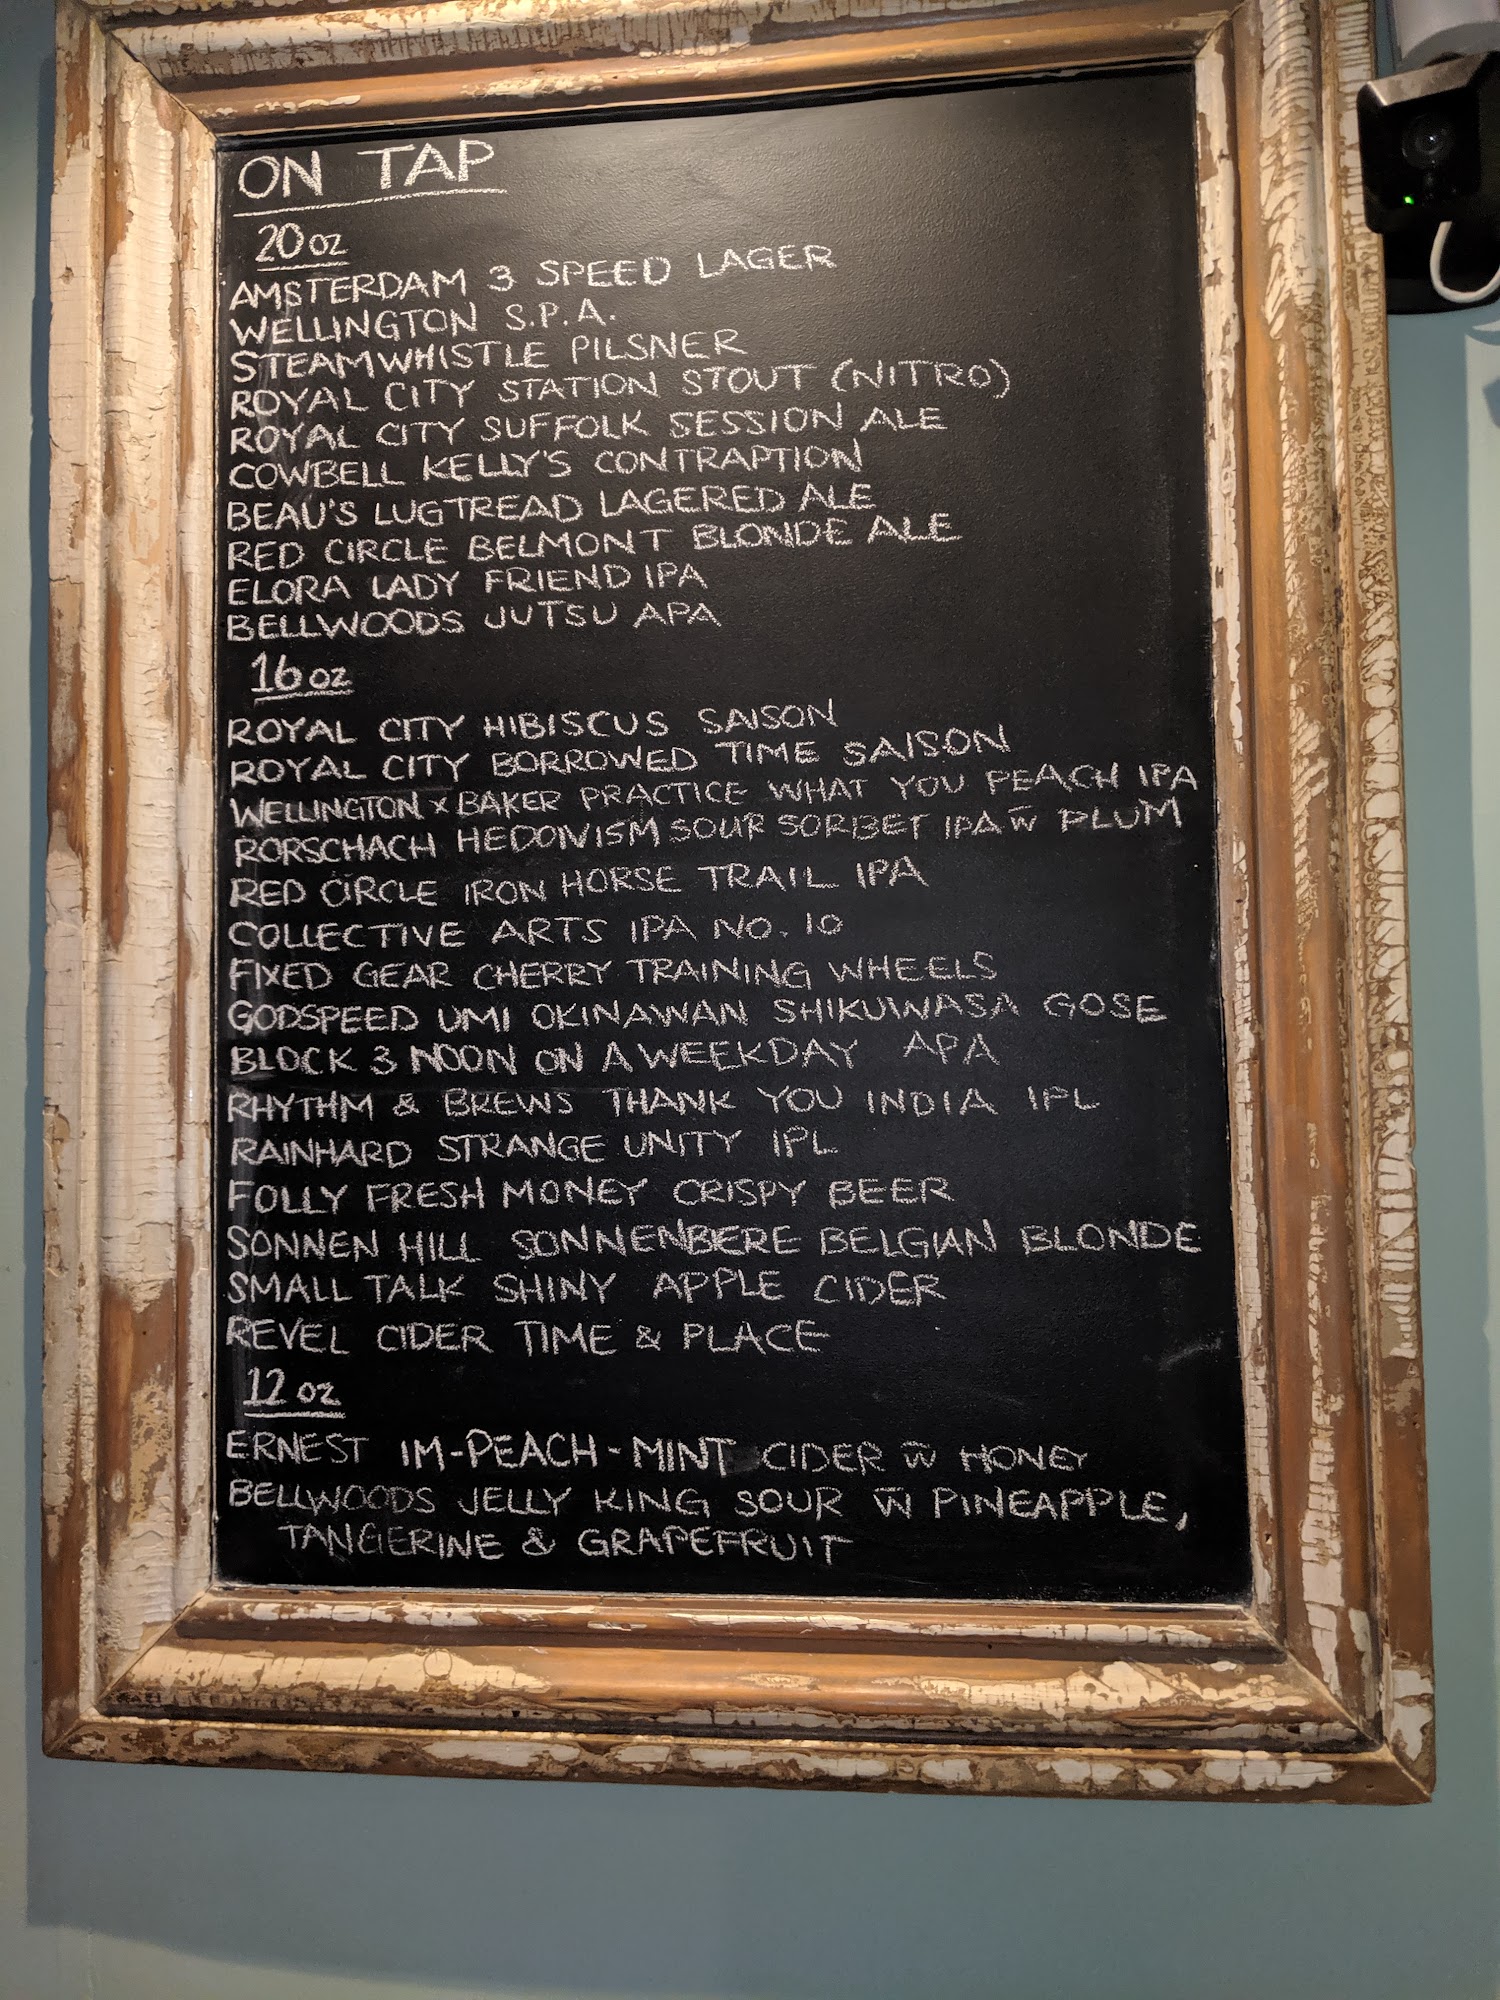 ON TAP
20 oz
AMSTERDAM 3 SPEED LAGER
WELLINGTON S.P.A.
STEAMWHISTLE PILSNER
ROYAL CITY STATION STOUT (NITRO)
ROYAL CITY SUFFOLK SESSION ALE
COWBELL KELLY'S CONTRAPTION
BEAU'S LUGTREAD LAGERED ALE
RED CIRCLE BELMONT BLONDE ALE
ELORA LADY FRIEND IPA
BELLWOODS JUTSU APA
16 oz
ROYAL CITY HIBISCUS SAISON
ROYAL CITY BORROWED TIME SAISON
WELLINGTON x BAKER PRACTICE WHAT YOU PEACH IPA
RORSCHACH HEDONISM SOUR SORBET IPA w̄ PLUM
RED CIRCLE IRON HORSE TRAIL IPA
COLLECTIVE ARTS IPA NO. 10
FIXED GEAR CHERRY TRAINING WHEELS
GODSPEED UMI OKINAWAN SHIKUWASA GOSE
BLOCK 3 NOON ON A WEEKDAY APA
RHYTHM & BREWS THANK YOU INDIA IPL
RAINHARD STRANGE UNITY IPL
FOLLY FRESH MONEY CRISPY BEER
SONNEN HILL SONNENBERE BELGIAN BLONDE
SMALL TALK SHINY APPLE CIDER
REVEL CIDER TIME & PLACE
12 oz
ERNEST IM-PEACH-MINT CIDER w̄ HONEY
BELLWOODS JELLY KING SOUR w̄ PINEAPPLE,
TANGERINE & GRAPEFRUIT